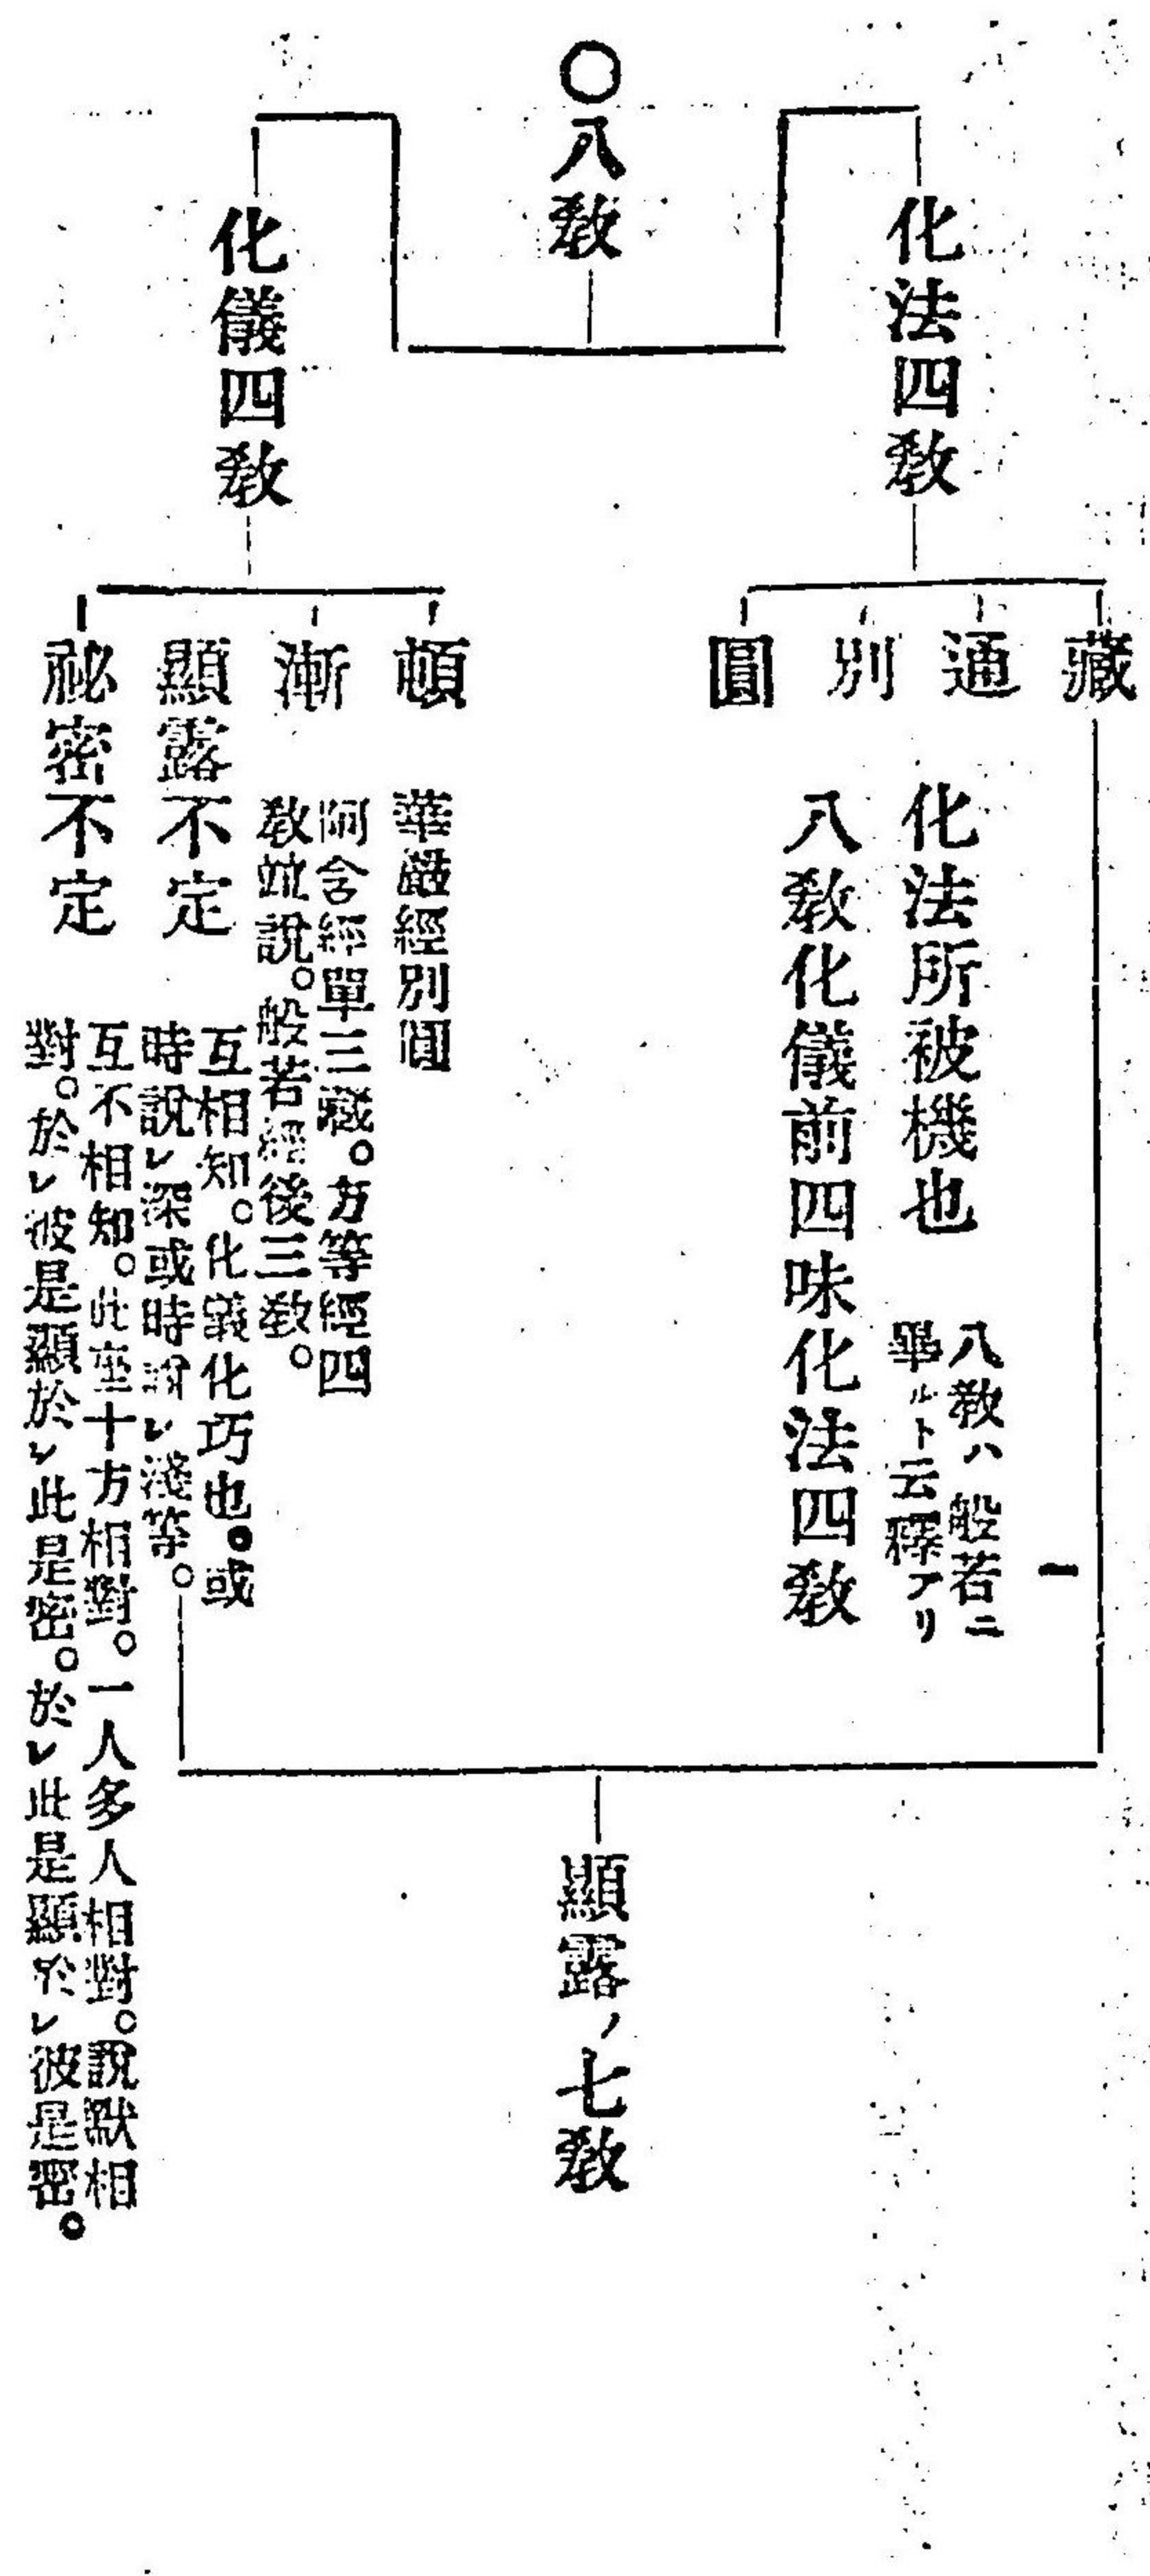 〇八教
化法四教
藏
通
別
圓
化法所被機也
八教ハ般若ニ
畢ルト云釋アリ
八教化儀前四味化法四教
化儀四教
頓
華嚴經別圓
漸
阿含經單三藏。方等經四
教竝說。般若經後三教。
顯露不定
互相知。化義化巧也。或
時說レ深或時說レ淺等。
祕密不定
互不相知。此座十方相對。一人多人相對。說默相
對。於レ彼是顯於レ此是密。於レ此是顯於レ彼是密。
顯露ノ七教